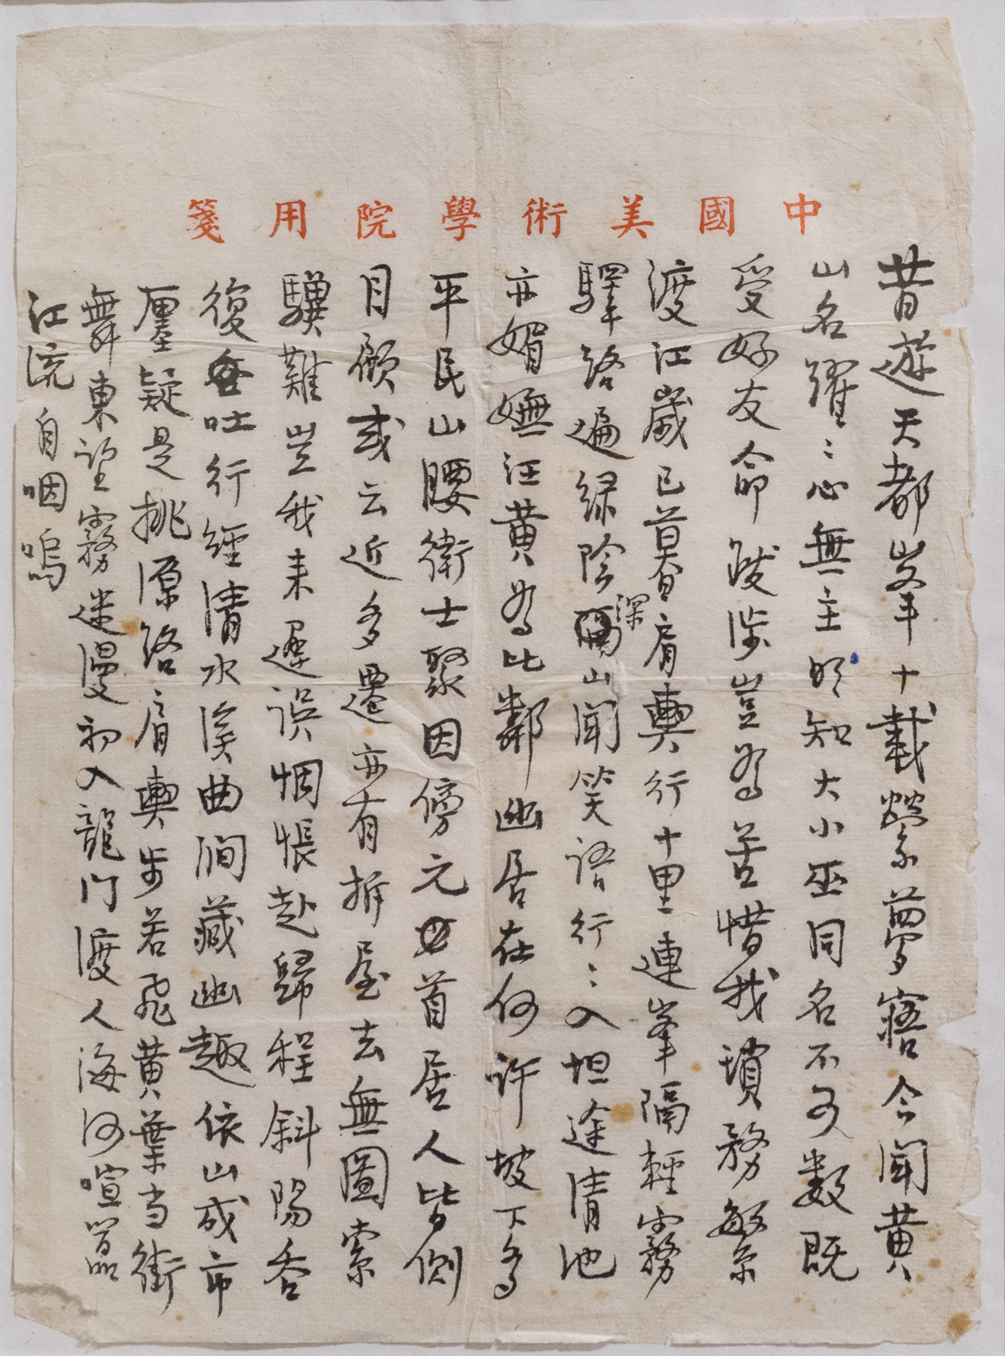 中國美術學院用箋
昔遊天都峯十載縈夢寤今聞黃
山名躍〻心無主明知大小巫同名不可數既
愛好友命跋涉豈為苦惜我瑣務繁
渡江歲已暮肩輿行十里連峯隔輕霧
驛路遍綠陰深山聞笑語行〻入坦途清池
亦媚嫵汪黃為比鄰幽居在何許坡下為
平民山腰衛士聚因傍元首居人皆側
目顧或云近多遷亦有拆屋去無圖索
驥難豈我來遲誤惆悵赴歸程斜陽吞
復吐行經清水溪曲澗藏幽趣依山成市
廛疑是挑源路肩輿步若飛黃葉當街
舞東望霧迷漫初入龍門渡人海何喧囂
江流自咽嗚